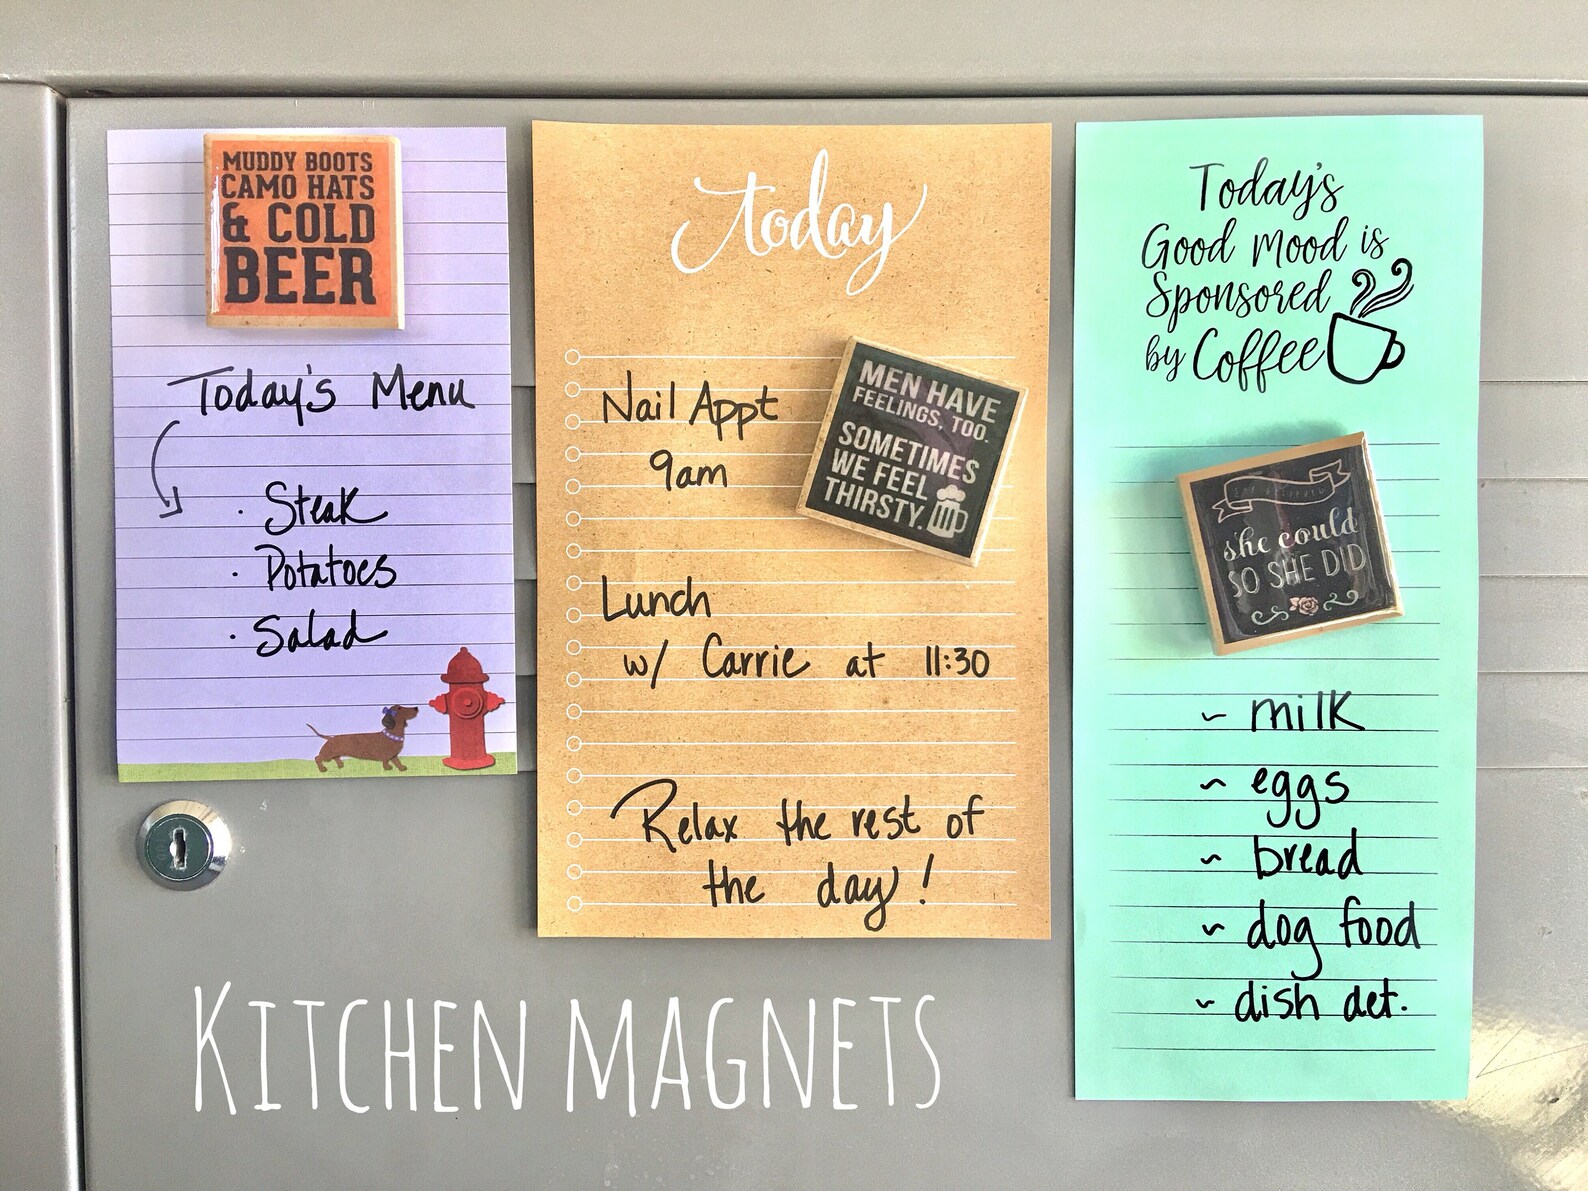 MUDDY BOOTS
CAMO HATS
& COLD
BEER
Today's Menu
· Steak
· Potatoes
· Salad
today
Nail Appt
9am
MEN HAVE
FEELINGS, TOO.
SOMETIMES
WE FEEL
THIRSTY.
Lunch
w/ Carrie at 11:30
Relax the rest of
the day!
Today's
Good Mood is
Sponsored
by Coffee
she could
SO SHE DID
~ milk
~ eggs
~ bread
~ dog food
~ dish det.
KITCHEN MAGNETS